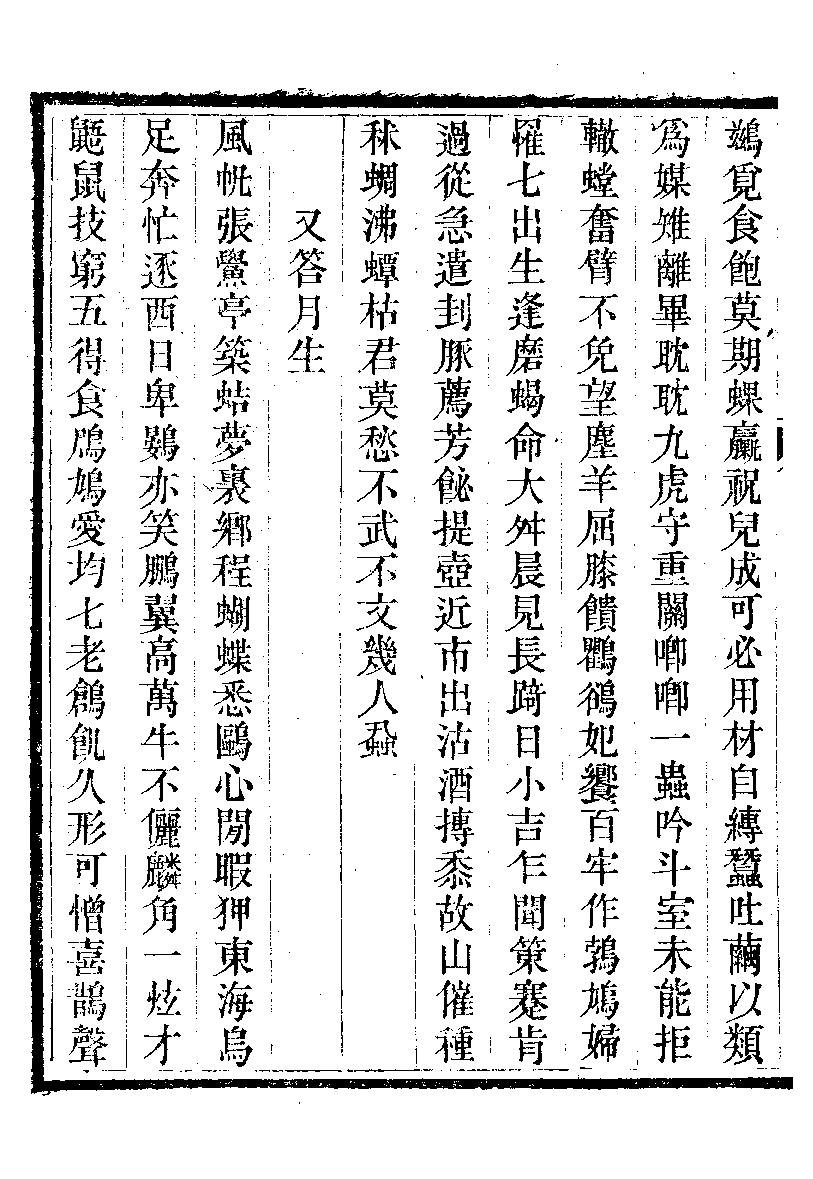 鷀覓食飽莫期蜾蠃祝兒成可必用材自縳蠶吐繭以類
爲媒雉離畢耽耽九虎守重關唧唧一蟲吟斗室未能拒
轍螳奮臂不免望塵羊屈膝饋鸜鵒妃饗百牢作鶉鳩婦
罹七出生逢磨蝎命大舛晨見長踦日小吉乍聞策蹇肯
過從急遣刲豚薦芳飶提壺近市出沽酒摶黍故山催種
秫蜩沸蟫枯君莫愁不武不文幾人蝨
又答月生
風帆張鱟亭築蛣夢裏鄉程蝴蝶悉鷗心閒暇狎東海烏
足奔忙逐西日卑鷃亦笑鵬翼高萬牛不儷麟角一炫才
鼯鼠技窮五得食鳲鳩愛均七老鶬飢久形可憎喜鵲聲